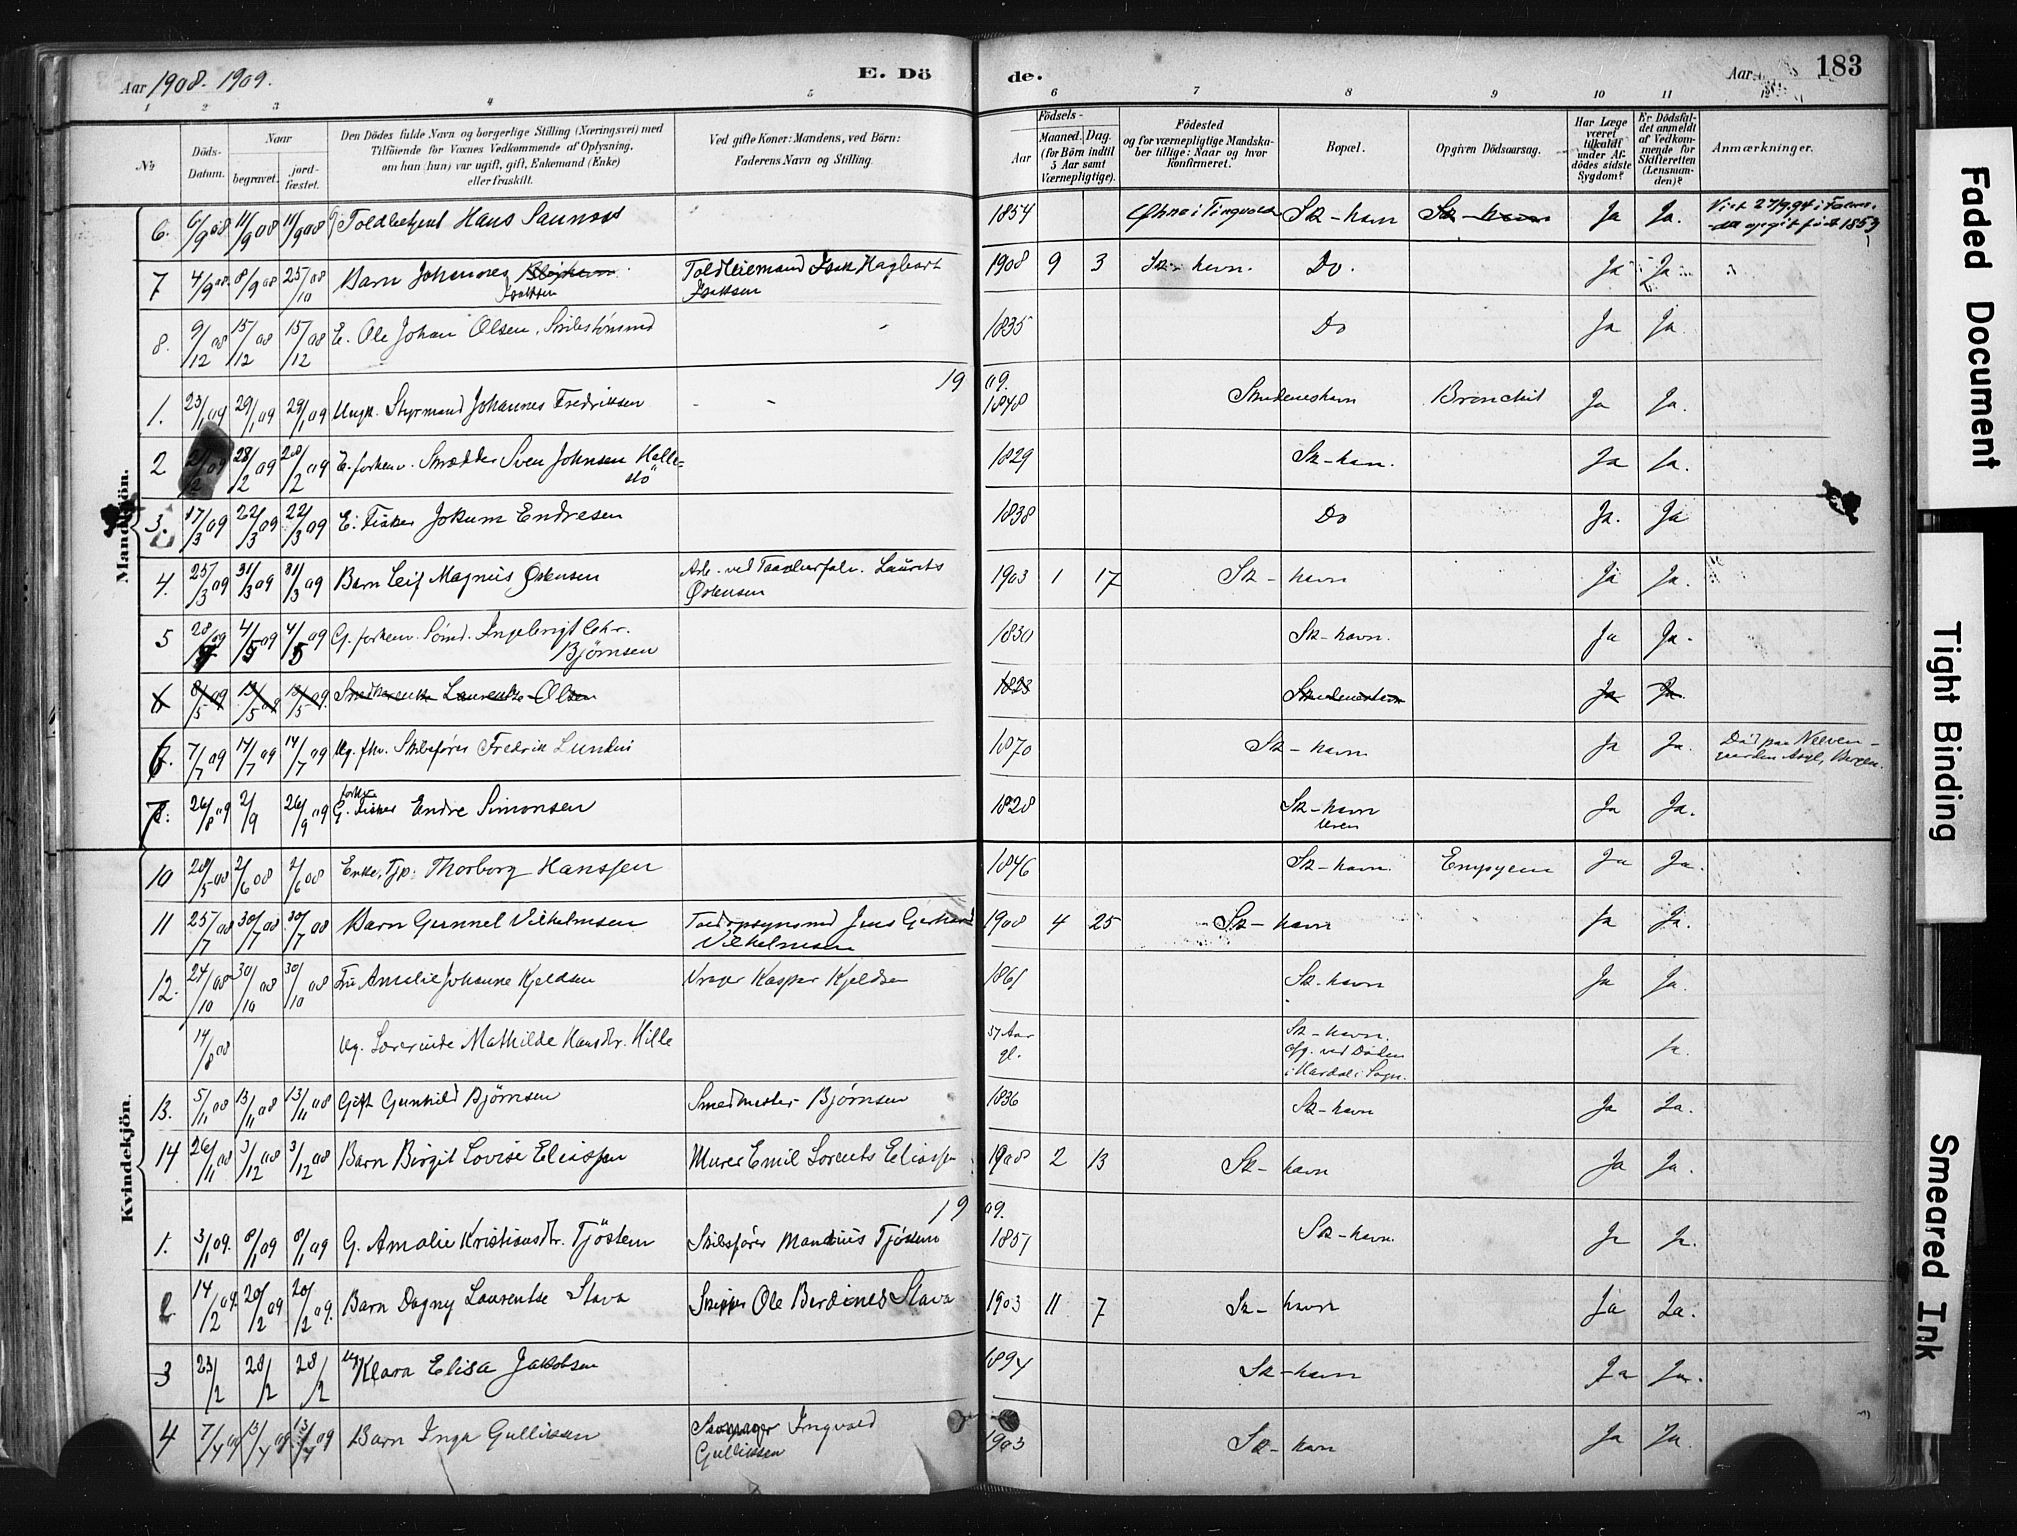 Aar 1908. 1909.
E. Dö
de.
Aar
183
1 2 3 4 5 6 7 8 9 10 11 12
No
Döds-Datum.
Naar
begravet.
jord-fæstet.
Den Dödes fulde Navn og borgerlige Stilling (Næringsvei) med
Tilföiende for Voxnes Vedkommende af Oplysning,
om han (hun) var ugift, gift, Enkemand (Enke)
eller fraskilt.
Ved gifte Koner: Mandens, ved Börn:
Faderens Navn og Stilling.
Födsels-
Aar
Maaned. Dag.
(for Börn indtil
5 Aar samt
Værnepligtige).
Födested
og for værnepligtige Mandska-
ber tillige: Naar og hvor
konfirmeret.
Bopæl.
Opgiven Dödsaarsag.
Har Læge
været
tilkaldt
under Af-
dödes sidste
Sygdom?
Er Dödsfal-
det anmeldt
af Vedkom-
mende for
Skifteretten
(Lensman-
den)?
Anmærkninger.
Mandkjön.
6. 6/9 08 11/9 08 11/9 08 Toldbetjent Hans Saunæs 1854 i Tingvold Sk-havn Sk-havn Ja Ja. Vist 27/9,94 i
opgit födt 1853
7 4/9 08 8/9 08 25/10 08 Barn Johannes
Isaksen
Isak Hagbart
Isaksen
1908 9 3 Sk-havn. Do. Ja Ja
8. 9/12 08 15/12 08 15/12 08 E. Ole Johan Olsen, 1835 Do Ja Ja.
1909.
1. 23/1 09 29/1 09 29/1 09 Ungk. Styrmand Johannes Fredriksen - - 1848 Skudeneshavn Bronchit Ja Ja.
2 28/2 09 28/2 09 E. forhenv. Skrædder Sven Johnsen Halle-
stö
1829 Sk-havn. Ja Ja.
3. 17/3 09 22/3 09 22/3 09 E. Fisker Jokum Endresen 1838 Do Ja. Ja
4. 25/3 09 31/3 09 31/3 09 Barn Leif Magnus Østensen Arb. ved Laurits
Østensen
1903 1 17 Sk-havn Ja Ja.
5 28/4 09 4/5 09 4/5 09 G. forhenv. Sömd. Ingebrigt Chr.
Bjørnsen
1830 Sk-havn. Ja Ja.
6 8/5 09 13/5 09 13/5 09. Laurentze Olsen 1823 Skudeneshavn Ja Ja.
6. 7/7 09 14/7 09 14/7 09 Ug. fhv. Skibsfører Fredrik Lunde 1870 Sk-havn Ja Ja. Död paa Neeven-
gaarden Asyl, Bergen.
7. 26/8 09 2/9 26/9 09 forhv.
G. Fisker Endre Simonsen 1828 Sk-havn
Ja Ja.
Kvindekjön.
10 28/5 08 2/6 08 2/6 08 Enke, Tjp. Thorborg Hanssen 1846 Sk-havn. Empyem Ja Ja.
11 25/7 08 30/7 08 30/7 08 Barn Gunnel Vilhelmsen Toldopsynsmd Jens Gerhard
Vilhelmsen
1908 4 25 Sk-havn Ja Ja.
12. 24/10 08 30/10 08 30/10 08 Fru Amalie Johanne Kjeldsen Vrager Kasper Kjeldsen 1861 Sk-havn Ja Ja.
14/8 08 Ug. Lærerinde Mathilde Hansdtr. Hille 57 Aar
gl.
Sk-havn.
ved Dalen
i Aardal i Sogn.
Ja.
13. 5/11 08 13/11 08 13/11 08 Gift Gunhild Bjørnsen Smedmester Bjørnsen 1836 Sk-havn Ja Ja.
14 26/11 08 3/12 08 3/12 08 Barn Birgit Lovise Eliassen Murer Emil Lorents Eliassen 1908 2 13 Sk-havn Ja Ja.
1909.
1. 3/1 09. 8/1 09 8/1 09 G. Amalie Kristiansdtr. Tjöstem Skibsfører Mandius Tjösem 1851 Sk-havn. Ja Ja.
2 14/2 09. 20/2 09 20/2 09. Barn Dagny Laurentse Stava Skipper Ole Berdines Stava 1903 11 7 Sk-havn Ja Ja.
3 23/2 28/2 28/2 ug Klara Elisa Jakobsen 1894 Sk-havn Ja Ja.
4 7/4 09 13/4 09 13/4 09 Barn Inga Gulliksen Ingvald
Gulliksen
1903 Sk-havn Ja Ja.
Faded Document
Tight Binding
Smeared Ink